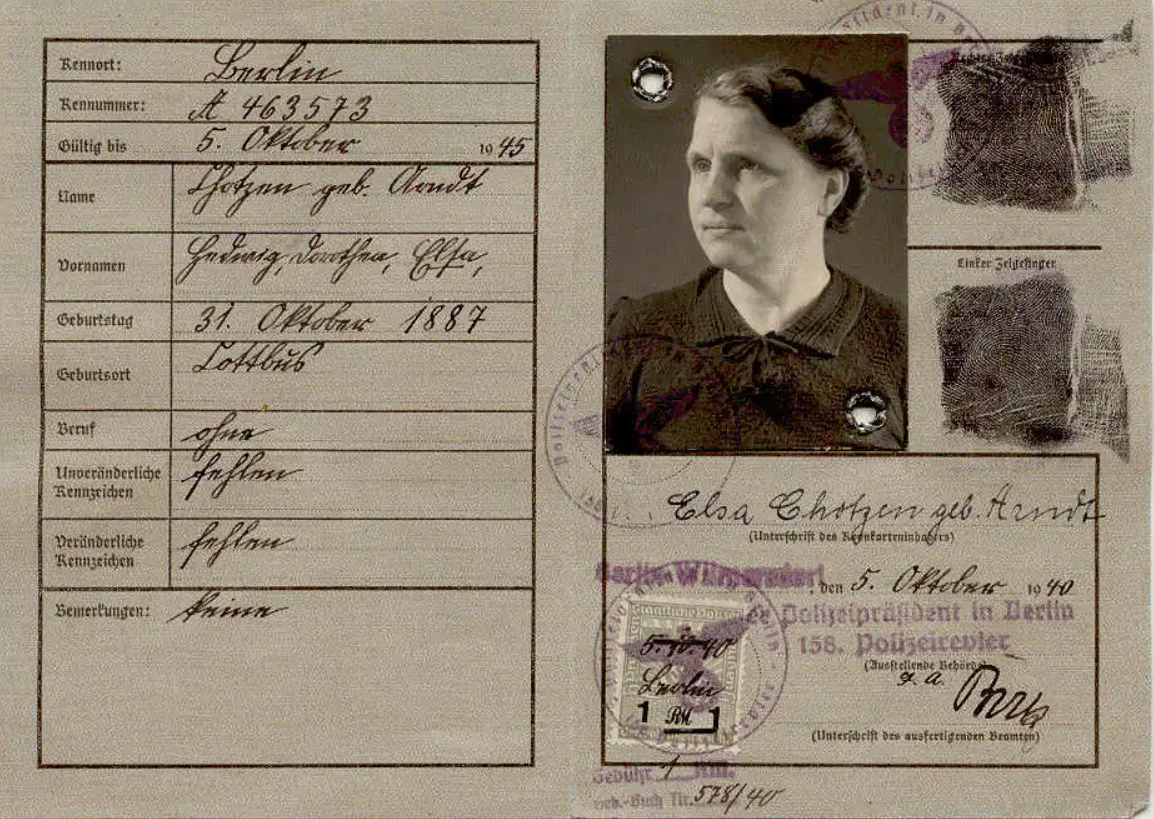 Kennort: Berlin
Kennummer: A 463573
Gültig bis 5. Oktober 1945
Name Chotzen geb. Arndt
Vornamen Hedwig, Dorothea, Elsa,
Geburtstag 31. Oktober 1887
Geburtsort Cottbus
Beruf ohne
Unveränderliche
Kennzeichen fehlen
Veränderliche
Kennzeichen fehlen
Bemerkungen: keine
Rechter Zeigefinger
Linker Zeigefinger
Elsa Chotzen geb. Arndt
(Unterschrift des Kennkarteninhabers)
Berlin-Wilmersdorf, den 5. Oktober 1940
Polizeipräsident in Berlin
158. Polizeirevier
(Ausstellende Behörde)
(Unterschrift des ausfertigenden Beamten)
5.10.40
Berlin
1 RM 1
Gebühr 1 RM.
Geb.-Buch Nr. 578/40